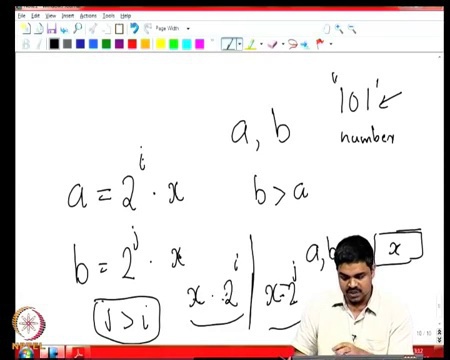 File Edit View Insert Actions Tools Help
Page Width
"101"
number
a, b
a = 2^i · x
b > a
b = 2^j · x
a, b
x
j > i
x · 2^i | x = 2^j